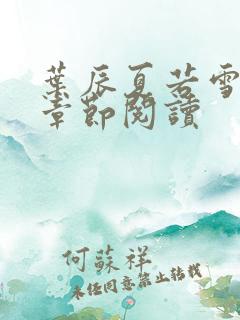 葉辰夏若雪
章節閱讀
何蘇祥
未經同意禁止轉載